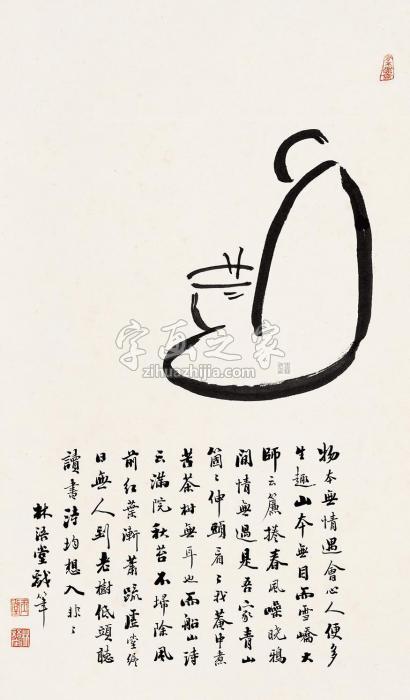 物本無情遇會心人便多
生趣山本無目而雪嶠大
師云簾捲春風噪曉鴉
閒情無過是吾家青山
箇〻伸頭看〻我菴中煮
苦茶樹無耳也而船山詩
云滿院秋苔不掃除風
前紅葉漸蕭疏虛堂終
日無人到老樹低頭聽
讀書詩均想入非〻
林語堂戲筆
字画之家
zihuazhijia.com